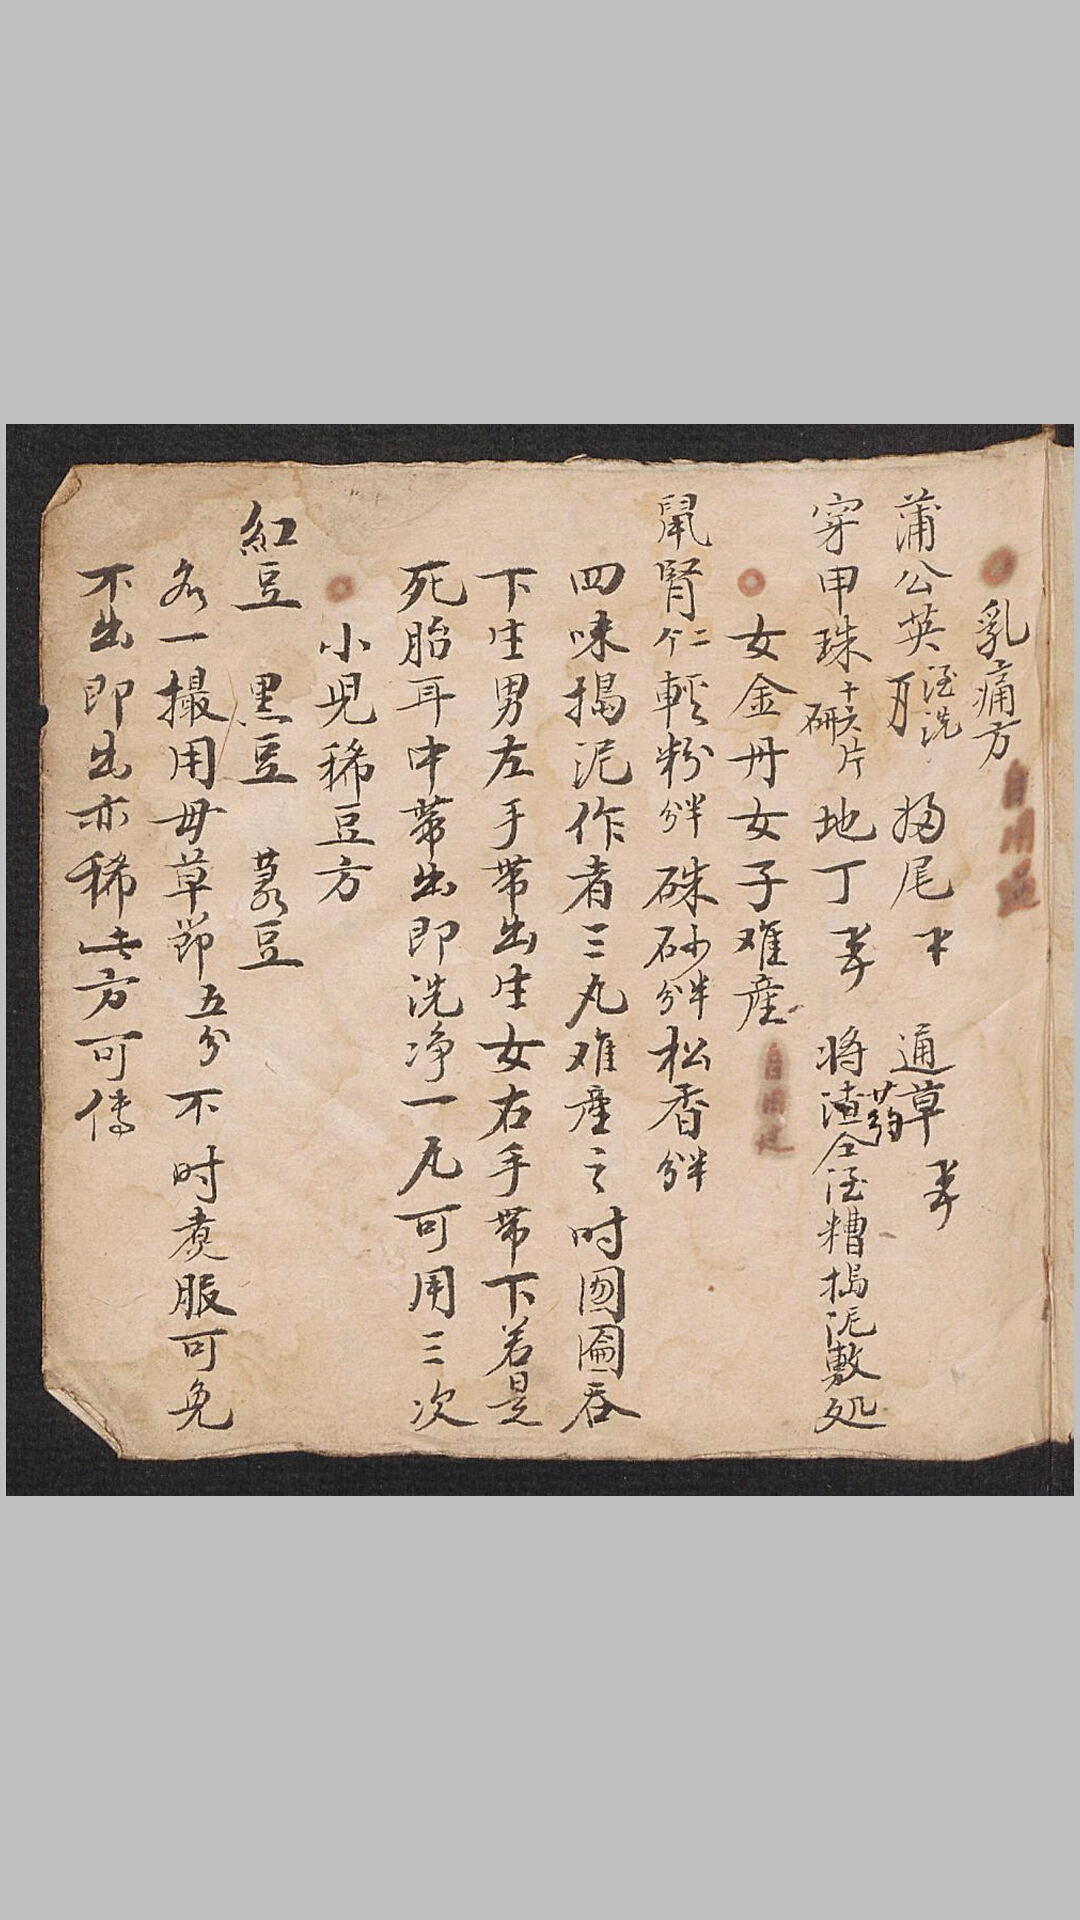 乳痛方 自用過
蒲公英 洗 尾 通草
穿甲珠十六片研 地丁 將渣仝 糟搗泥敷処
女金丹女子难產 自用過
鼠腎二个 輕粉半分 硃砂半分 松香半分
四味搗泥作者三丸难產之时囫圇吞
下生男左手带出生女右手带下若是
死胎耳中带出即洗净一丸可用三次
小児稀豆方
紅豆 黑豆 菉豆
各一撮用毋草節五分不时煮服可免
不出即出亦稀此方可傳